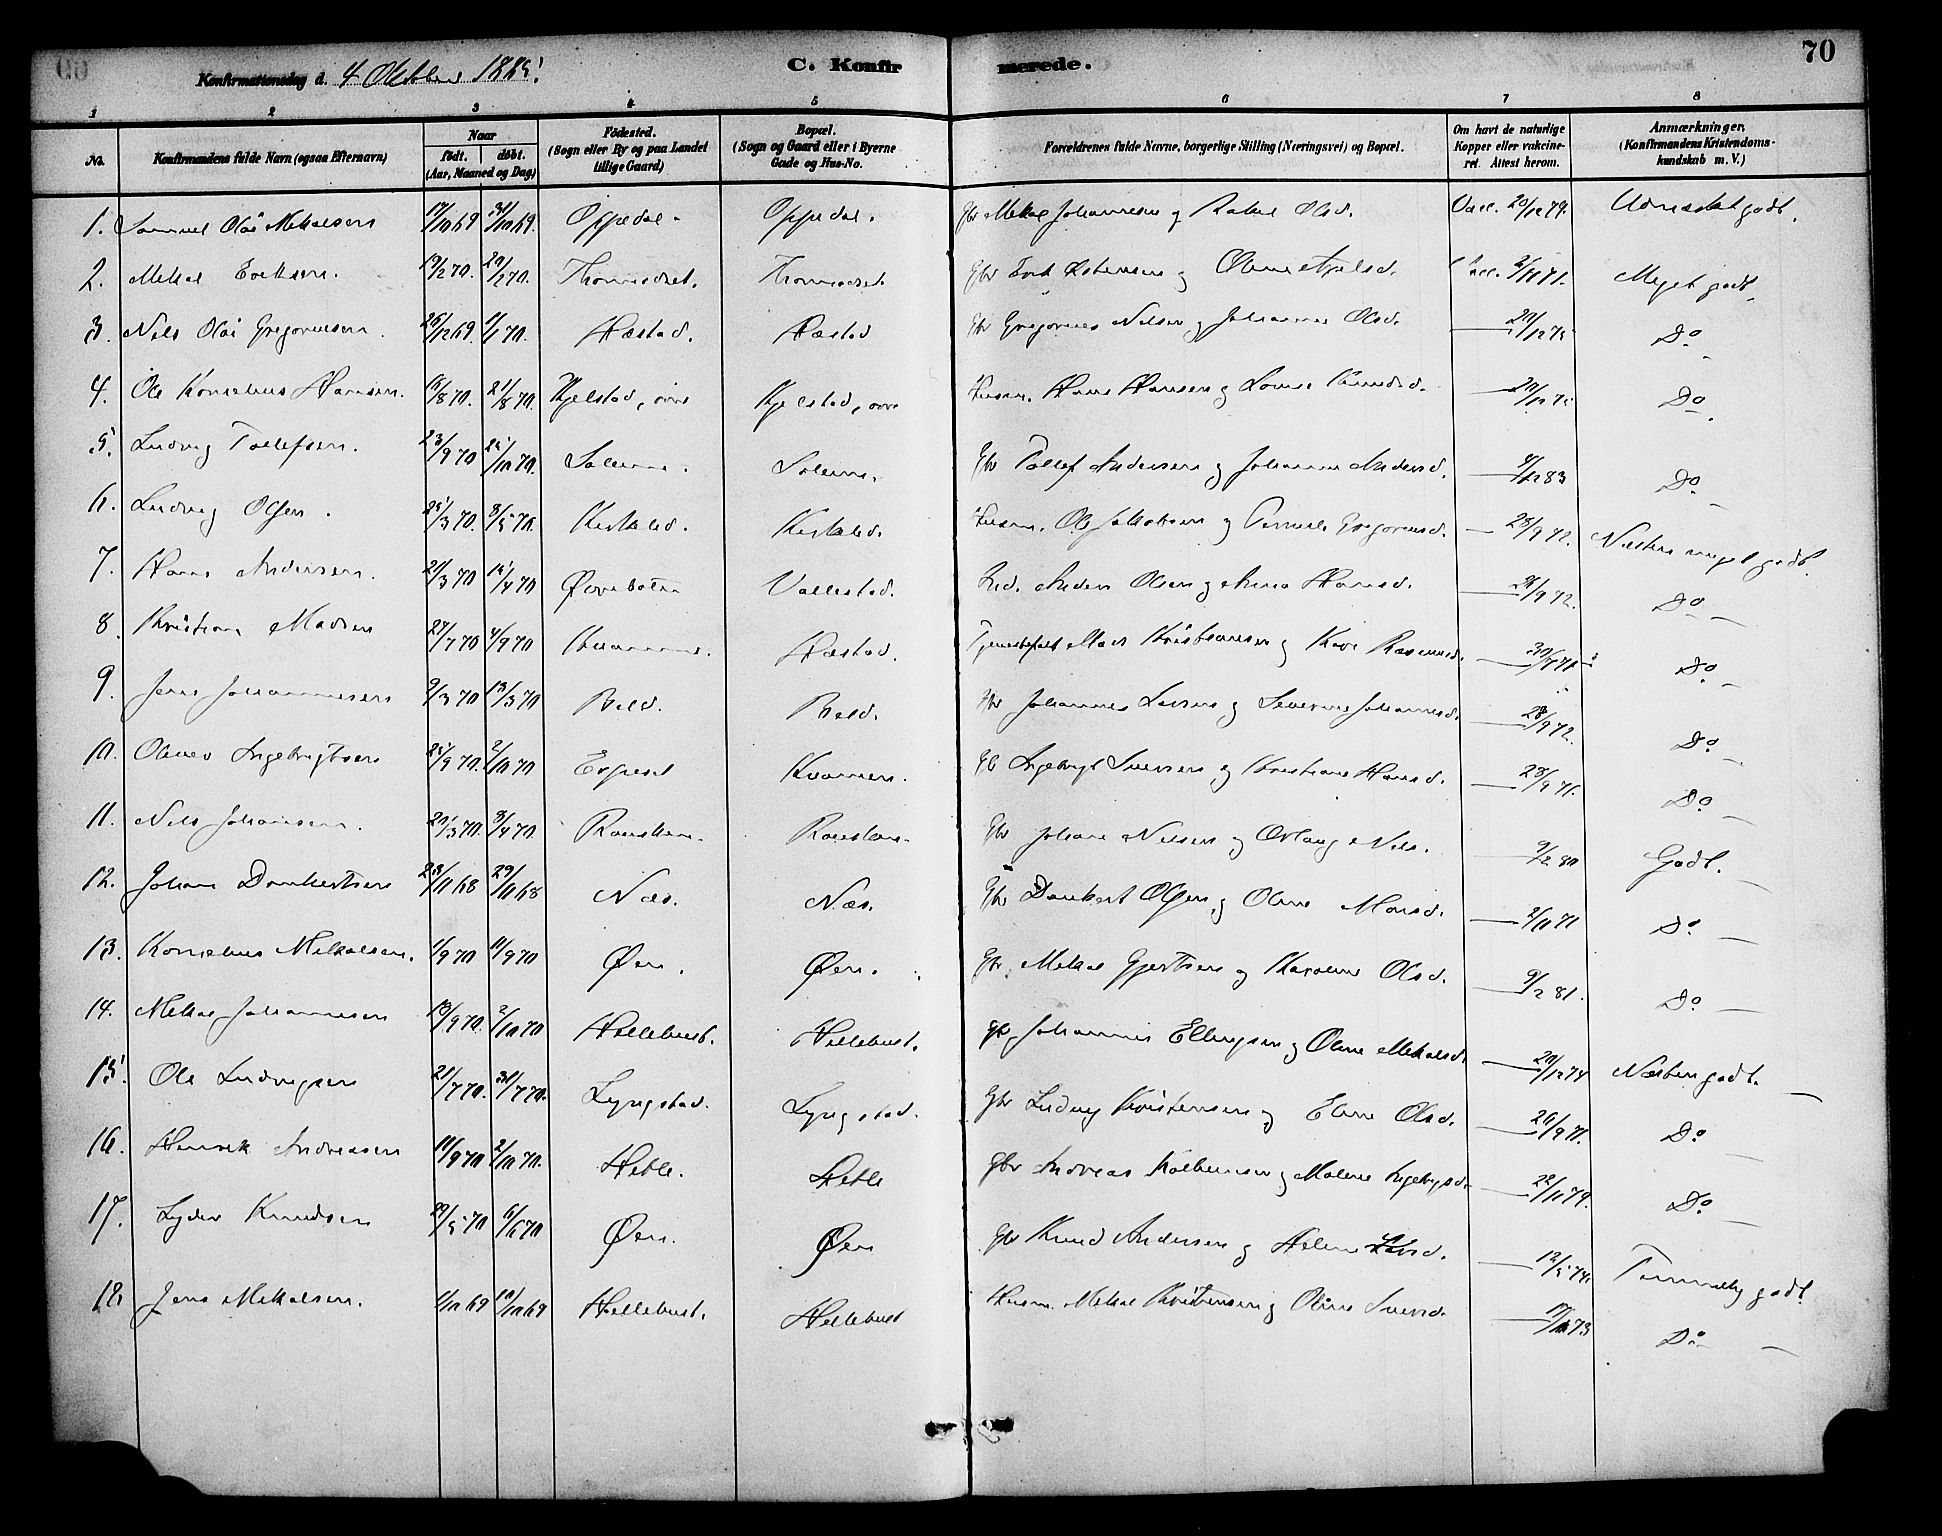 70
Konfirmationsdag d. 4 Oktober 1885.
C. Konfirmerede.
1 2 3 4 5 6 7 8
No. Konfirmandens fulde Navn (ogsaa Efternavn) Naar født. døbt. (Aar, Maaned og Dag) Fødested. (Sogn eller By og paa Landet tillige Gaard) Bopæl. (Sogn og Gaard eller i Byerne Gade og Hus-No. Forældrenes fulde Navne, borgerlige Stilling (Næringsvei) og Bopæl. Om havt de naturlige Kopper eller vakcineret. Attest herom. Anmærkninger. (Konfirmandens Kristendomskundskab m. V.)
1. Samuel Olai Mikalsen 17/10 69 31/10 69. Oppedal. Oppedal. Gbr Mikal Johannesen og Rakel Olsd. Vacc. 20/12 79. Udmærket godt.
2. Mikal Eriksen. 19/2 70. 20/2 70. Gbr Erik Østensen og Oline 2/11 71. Meget godt
3. Nils Olai Gregoriussen. 26/12 69. 1/1 70. Hæstad. Hæstad Gbr Gregorius Nilsen og Johanne Olsd. 20/12 75 Do
4. Ole Kornelius Hansen. 16/8 70. 21/8 70. Kjelstad, øvre Kjelstad, øvre Husm. Hans Hansen og Lovise Knudsd. 20/12 75 Do
5. Ludvig Tollefsen. 23/9 70 25/10 70. Solem. Solem. Gbr Tollef Andersen og Johanne Andersd. 4/12 83 Do
6. Ludvig Olsen. 25/3 70. 8/5 70. Husm. Ole Jakobsen og Pernille Gregoriusd. 28/9 72. Næsten meget godt.
7. Hans Andersen. 21/3 70 15/4 70 Øvrebotn Vallestad. Ind. Anders Olsen og Anna Hansd. 26/9 72. Do
8. Kristian Madsen 27/7 70 4/9 70 Kvammen. Hæstad. Tjenestefolk Mads Kristiansen og Kari Rasmusd. 30/7 71 Do
9. Jens Johannesen 9/3 70 13/3 70 Bold. Bold. Gbr Johannes Larsen og Severine Johannesd. 28/9 72. Do
10. Oliner Ingebrigtsen 25/9 70. 2/10 70 Espeset Kvammen. Gbr Ingebrigt Sivertsen og Kristiane Hansd. 28/9 71. Do
11. Nils Johansen. 20/3 70. 3/4 70. Gbr Johan Nilsen og Nilsd. 9/2 80 Godt.
12. Johan Dankertsen 28/11 68 29/11 68 Næs. Næs. Gbr Dankert Olsen og Oline Monsd. 2/11 71 Do
13. Kornelius Mikalsen. 1/9 70 11/9 70 Øen. Øen. Gbr. Mikal Gjertsen og Karoline Olsd. 9/2 81. Do
14. Mikal Johannesen 13/9 70. 2/10 70 Hellebust. Hellebust. Gbr Johannes Ellingsen og Oline Mikalsd. 20/12 74 Næsten godt.
15. Ole Ludvigsen 21/7 70. 31/7 70. Lyngstad. Lyngstad. Gbr Ludvig Kristensen og Eline Olsd. 20/9 71. Do
16. Henrik Andreasen 11/9 70 2/10 70. Hetle. Hetle Gbr Andreas Kolbensen og Malene Ingebrigtsd. 22/11 79. Do
17. Lyder Knudsen 29/5 70 6/6 70 Øen. Øen Gbr Knud Andersen og Helene Larsd. 12/5 74. Temmelig godt
18. Jens Mikalsen. 1/10 69 10/10 69 Hellebust. Hellebust Husm. Mikal Kristensen og Oline Sivertsd. Do